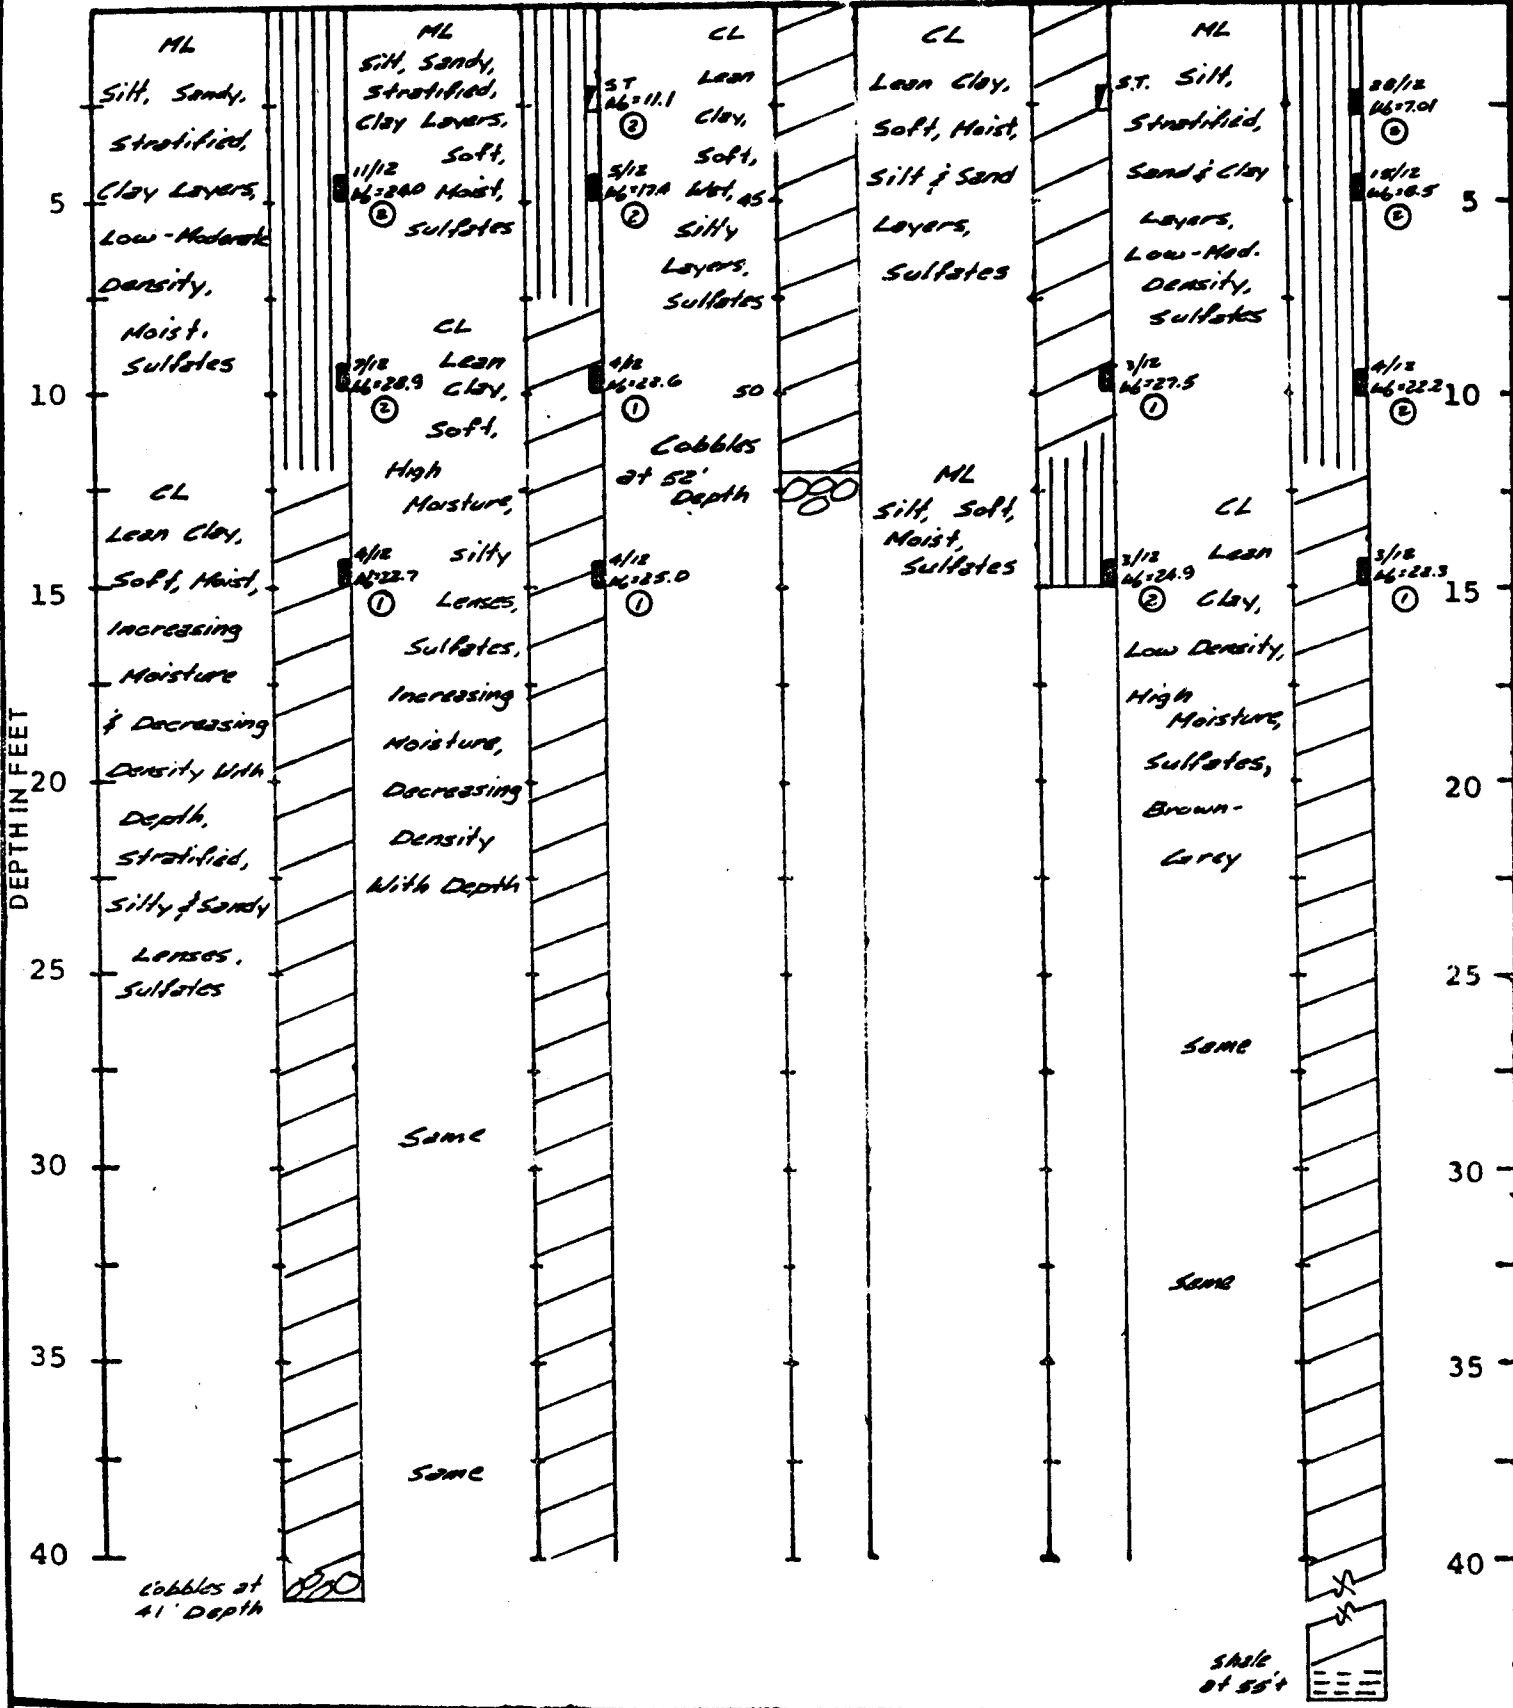 ML
Silt, Sandy,
Stratified,
Clay Layers,
Low-Moderate
Density,
Moist.
Sulfates
CL
Lean Clay,
Soft, Moist,
Increasing
Moisture
& Decreasing
Density With
Depth,
Stratified,
Silty & Sandy
Lenses.
Sulfates
Cobbles at
41' Depth
11/12
Wb=24.0
2
7/12
Wb=28.9
2
4/12
Wb=22.7
1
ML
Silt, Sandy,
Stratified,
Clay Layers,
Soft,
Moist,
Sulfates
CL
Lean
Clay,
Soft,
High
Moisture,
Silty
Lenses,
Sulfates,
Increasing
Moisture,
Decreasing
Density
With Depth
Same
Same
ST
Wb=11.1
2
5/12
Wb=17.4
2
4/12
Wb=22.6
1
4/12
Wb=25.0
1
CL
Lean
Clay,
Soft,
Wet, 45
Silty
Layers,
Sulfates
50
Cobbles
at 52'
Depth
CL
Lean Clay,
Soft, Moist,
Silt & Sand
Layers,
Sulfates
ML
Silt, Soft,
Moist,
Sulfates
S.T.
3/12
Wb=27.5
1
3/12
Wb=24.9
2
ML
Silt,
Stratified,
Sand & Clay
Layers,
Low-Mod.
Density,
Sulfates
CL
Lean
Clay,
Low Density,
High
Moisture,
Sulfates,
Brown-
Grey
Same
Same
Shale
at 55'±
28/12
Wb=7.01
2
18/12
Wb=8.5
2
4/12
Wb=22.2
2
3/12
Wb=22.3
1
DEPTH IN FEET
5
10
15
20
25
30
35
40
5
10
15
20
25
30
35
40